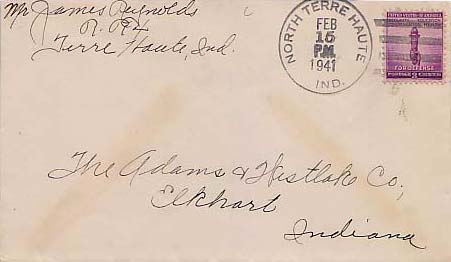 Mr James Reynolds
R. R#4
Terre Haute, Ind.
NORTH TERRE HAUTE
FEB
15
PM
1941
IND.
UNITED STATES OF AMERICA
FOR DEFENSE
POSTAGE 3 CENTS
The Adams & Westlake Co,
Elkhart
Indiana